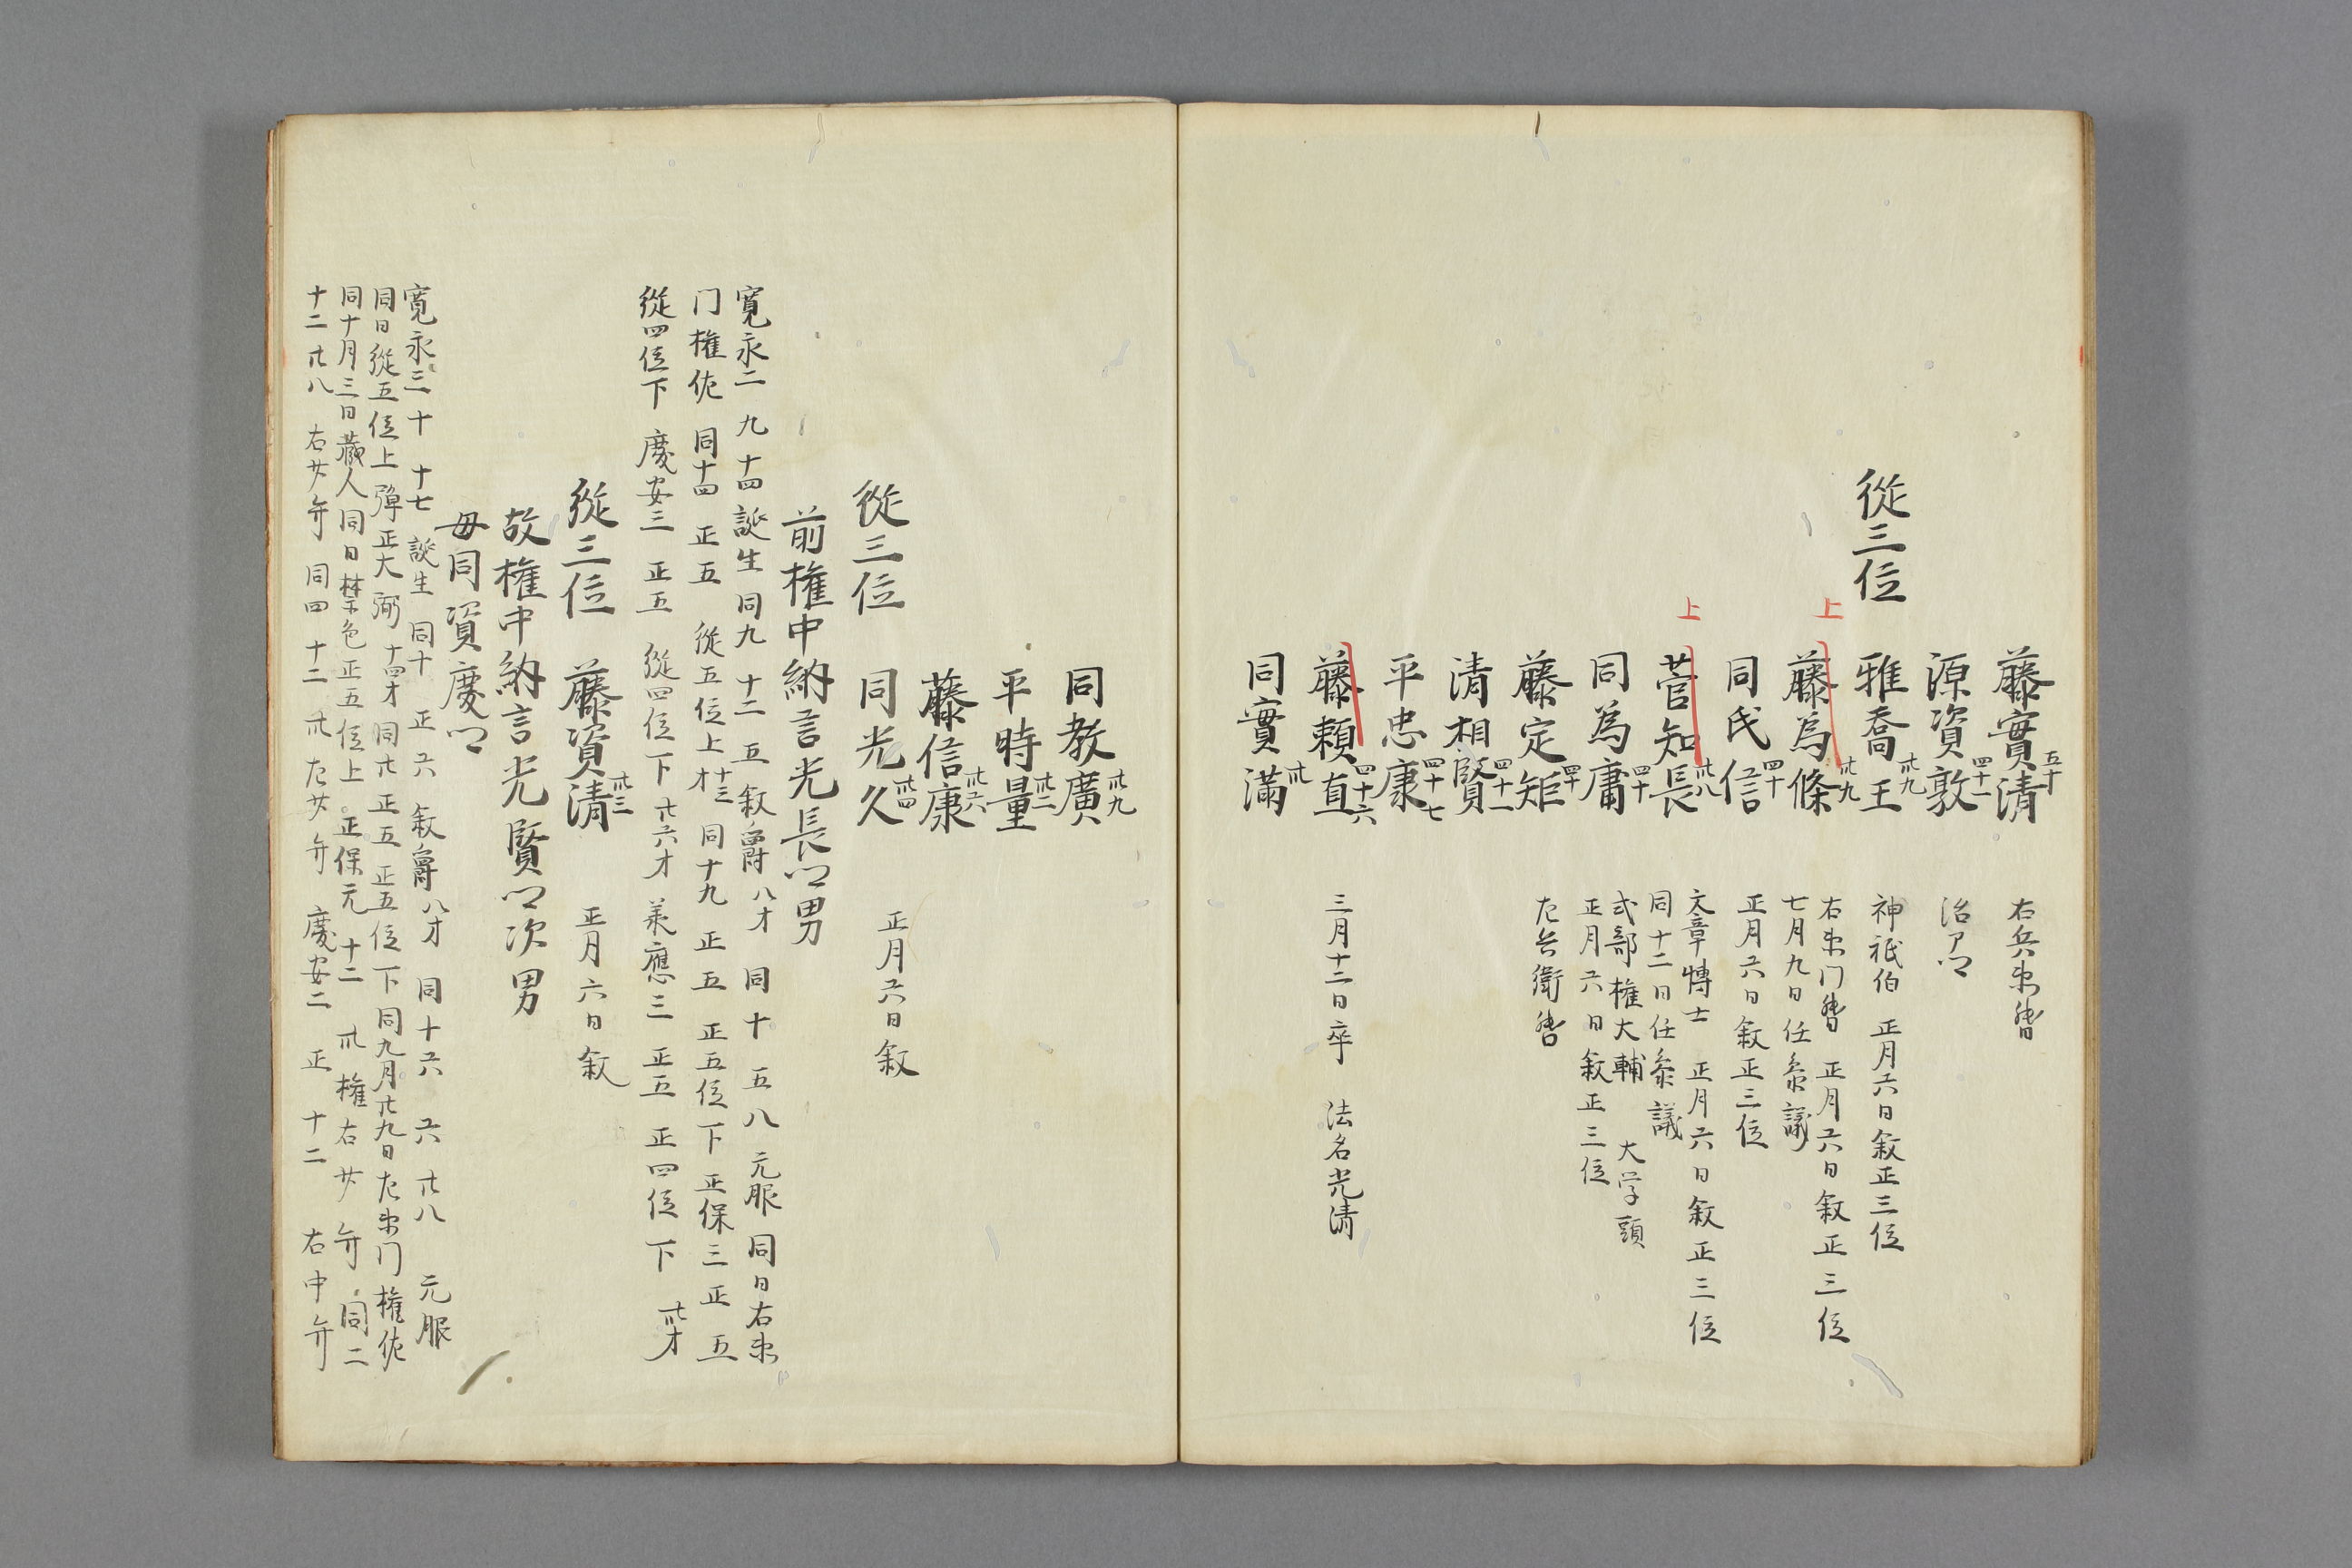 藤實清 五十 右兵衛督
源資敦 四十一 治アイ
從三位 雅喬王 卅九 神祇伯 正月六日叙正三位
上 藤為條 卅九 右衛门督 正月六日叙正三位
七月九日任参議
同氏信 四十 正月六日叙正三位
上 菅知長 卅八 文章博士 正月六日叙正三位
同十二日任参議
式部権大輔 大学頭
同為庸 四十 正月六日叙正三位
藤定矩 四十 左兵衛督
清相賢 四十一
平忠康 四十七
藤頼直 四十六 三月十二日卒 法名光清
同實満 卅
同教廣 卅九
平時量 卅二
藤信康 卅六
從三位 同光久 卅四 正月六日叙
前権中納言光長卿男
寛永二 九 十四 誕生 同九 十二 五 叙爵 八才 同十 五 八 元服 同日右衛
门権佐 同十四 正 五 從五位上 十三才 同十九 正 五 正五位下 正保三 正 五
從四位下 慶安三 正五 從四位下 廿六才 承應三 正五 正四位下 卅才
從三位 藤資清 卅三 正月六日叙
故権中納言光賢卿次男
母同資慶卿
寛永三 十 十七 誕生 同十 正 六 叙爵 八才 同十六 六 廿八 元服
同日從五位上 弾正大弼 十四才 同廿 正五 正五位下 同九月廿九日左衛门権佐
同十月三日蔵人 同日禁色 正五位上 正保元 十二 卅 権右少弁 同二
十二 廿八 右少弁 同四 十二 卅 左少弁 慶安二 正 十二 右中弁